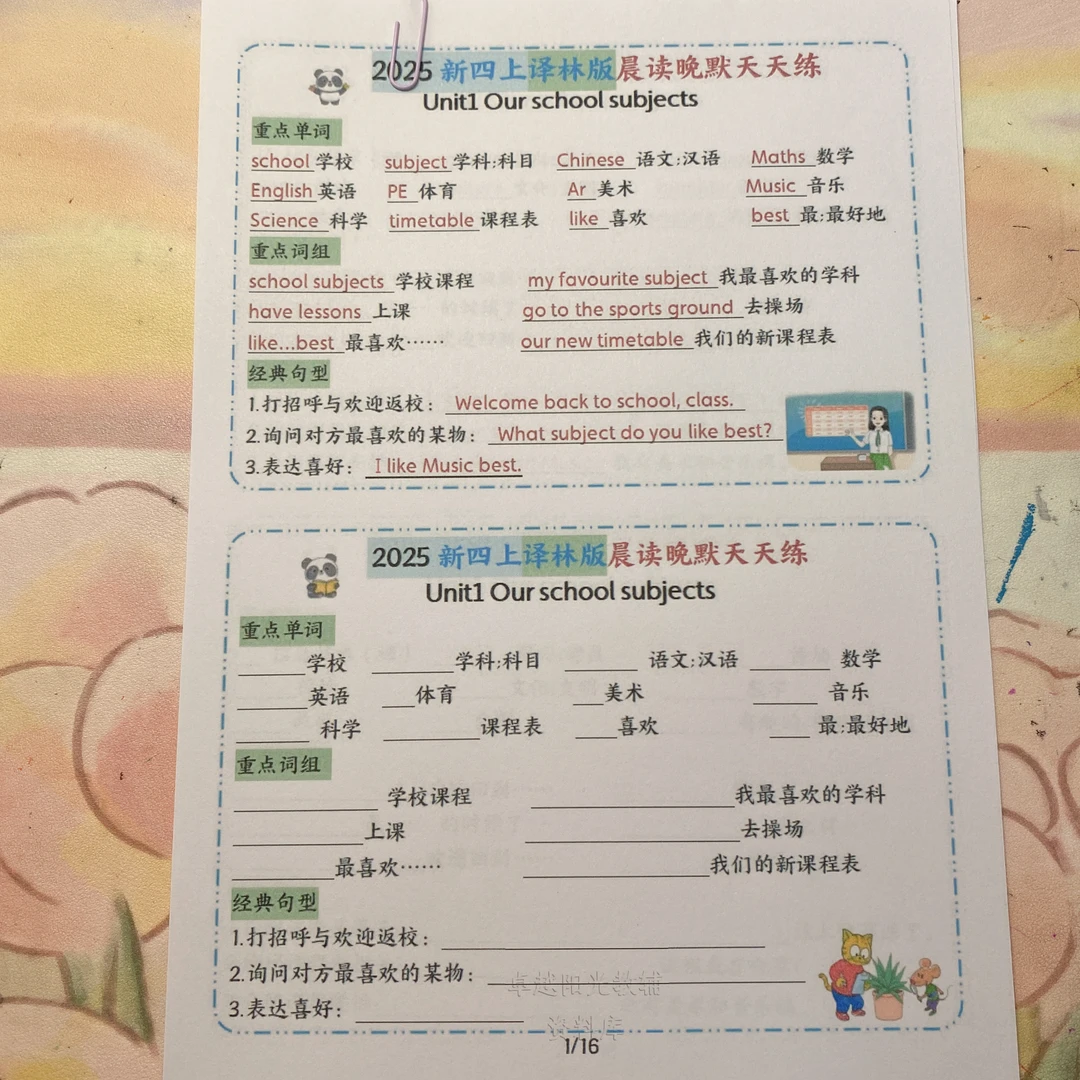 2025 新四上译林版晨读晚默天天练
Unit1 Our school subjects
重点单词
school 学校 subject 学科;科目 Chinese 语文;汉语 Maths 数学
English 英语 PE 体育 Ar 美术 Music 音乐
Science 科学 timetable 课程表 like 喜欢 best 最;最好地
重点词组
school subjects 学校课程 my favourite subject 我最喜欢的学科
have lessons 上课 go to the sports ground 去操场
like...best 最喜欢…… our new timetable 我们的新课程表
经典句型
1.打招呼与欢迎返校: Welcome back to school, class.
2.询问对方最喜欢的某物: What subject do you like best?
3.表达喜好: I like Music best.
2025 新四上译林版晨读晚默天天练
Unit1 Our school subjects
重点单词
______学校 ______学科;科目 ______ 语文;汉语 ______ 数学
______英语 ___体育 ___美术 ______ 音乐
______ 科学 ________课程表 ____喜欢 ____ 最;最好地
重点词组
____________ 学校课程 ________________我最喜欢的学科
___________上课 _________________去操场
_________最喜欢…… _______________我们的新课程表
经典句型
1.打招呼与欢迎返校: __________________________
2.询问对方最喜欢的某物: __________________________
卓越阳光教辅
3.表达喜好: ______________
资料库
1/16